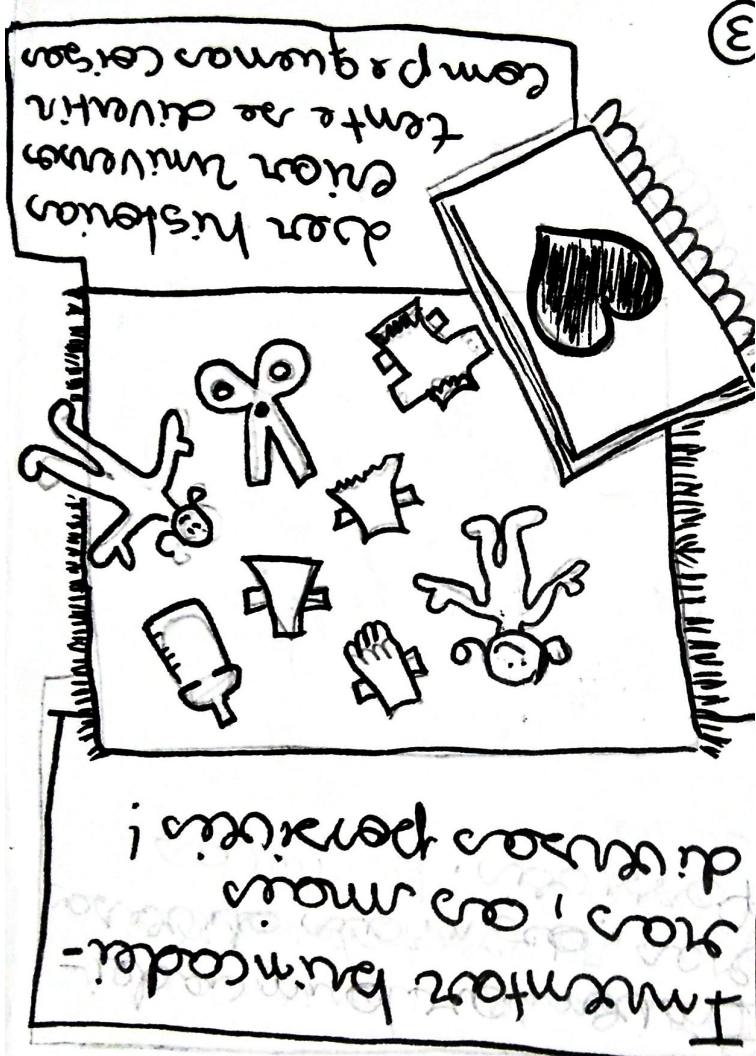 Inventar brincadei-
ras, as mais
diversas possiveis!
Ler historias
criar universos
tente se divertir
com pequenas coisas
3